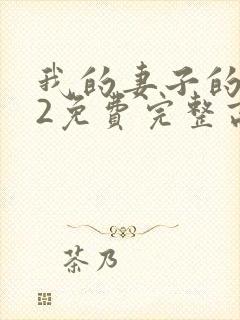 我的妻子的
2免费完整
茶乃